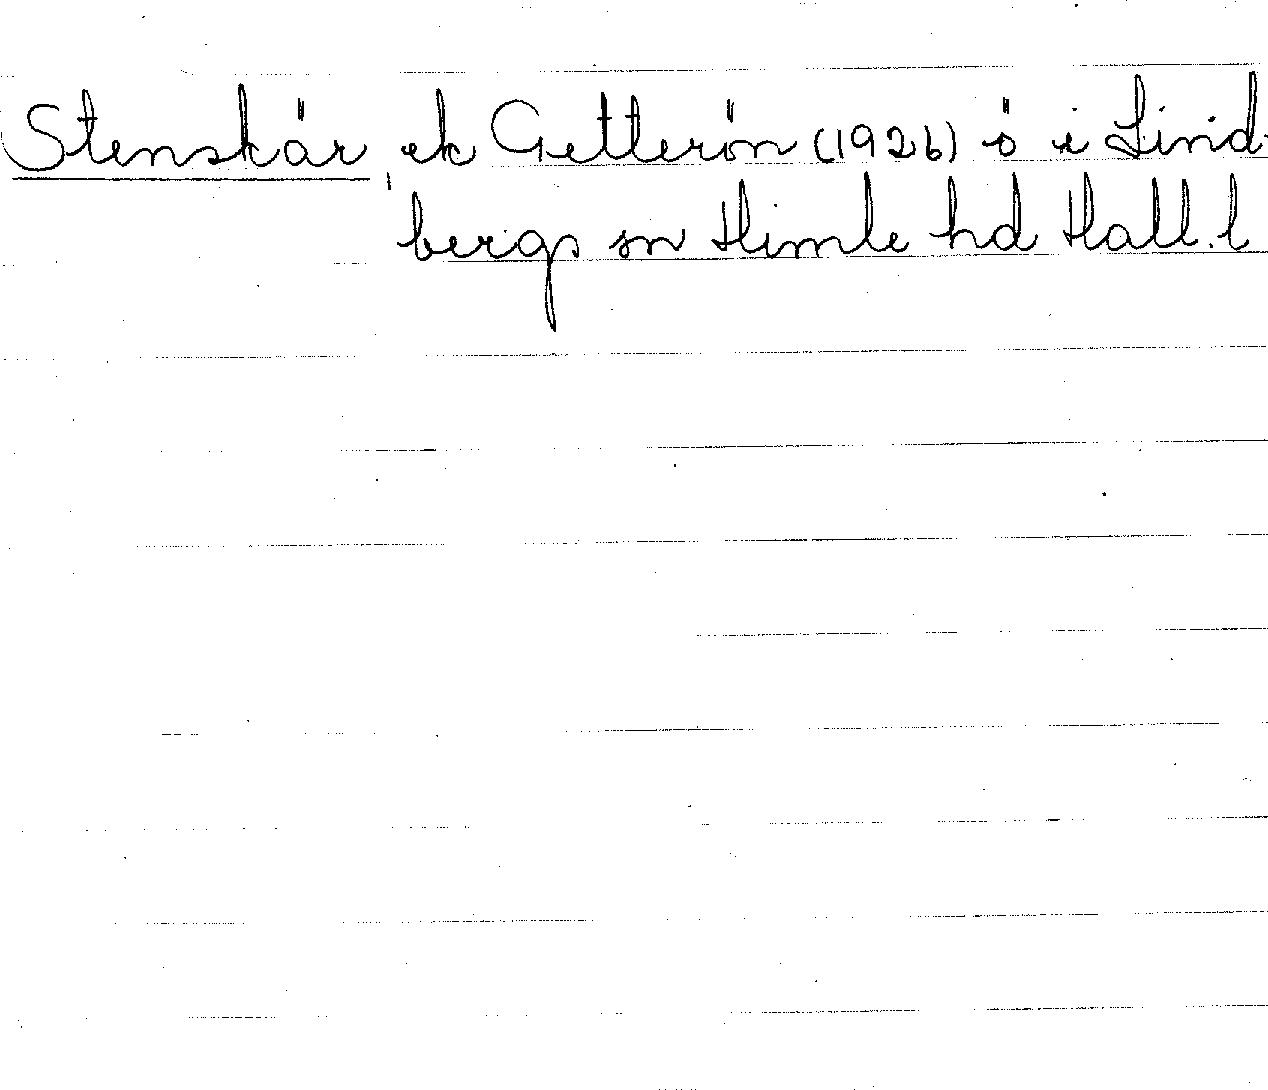 Stenskär, ek Getterön (1926) ö i Lind-
bergs sn Himle hd Hall. l